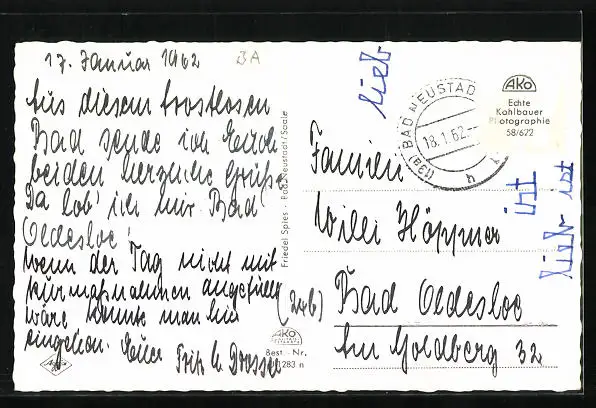 17. Januar 1962
Aus diesem trostlosen
Bad sende ich Euch
beiden herzliche Grüße
Da lob' ich mir Bad
Oldesloe!
Wenn der Tag nicht mit
Kurmaßnahmen angefüllt
wäre könnte man hier
eingehen. Euer
Fritz
BA
Friedel Spies - Bad Neustadt/Saale
AKO
Best.-Nr.
283 n
lieb
(13a) BAD NEUSTADT
18.1.62
AKO
Echte
Kohlbauer
Photographie
58/622
Familien
Willi Höppner
(24b) Bad Oldesloe
Am Goldberg 32
ist
lieb ist